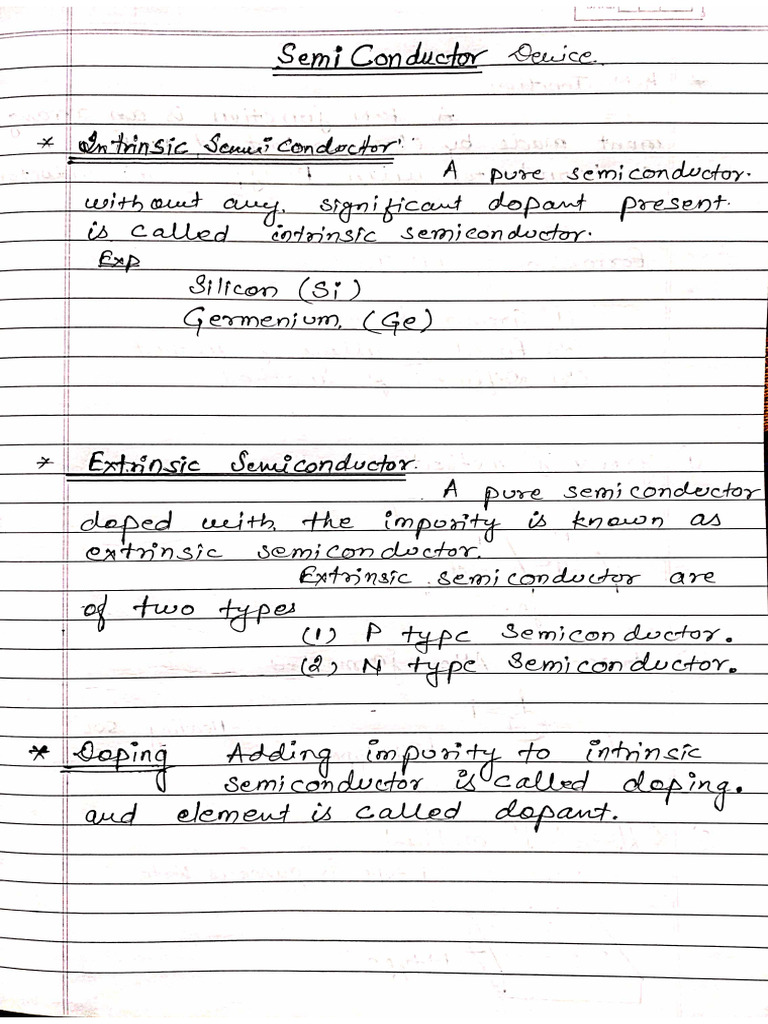 Semi Conductor Device.
* Intrinsic Semi conductor
A pure semiconductor.
without any, significant dopant present.
is called intrinsic semiconductor.
Exp
Silicon (Si)
Germenium, (Ge)
* Extrinsic Semiconductor.
A pure semiconductor
doped with the impurity is known as
extrinsic semiconductor.
Extrinsic semiconductor are
of two types
(1) P type semiconductor.
(2) N type semiconductor.
* Doping Adding impurity to intrinsic
semiconductor is called doping.
and element is called dopant.